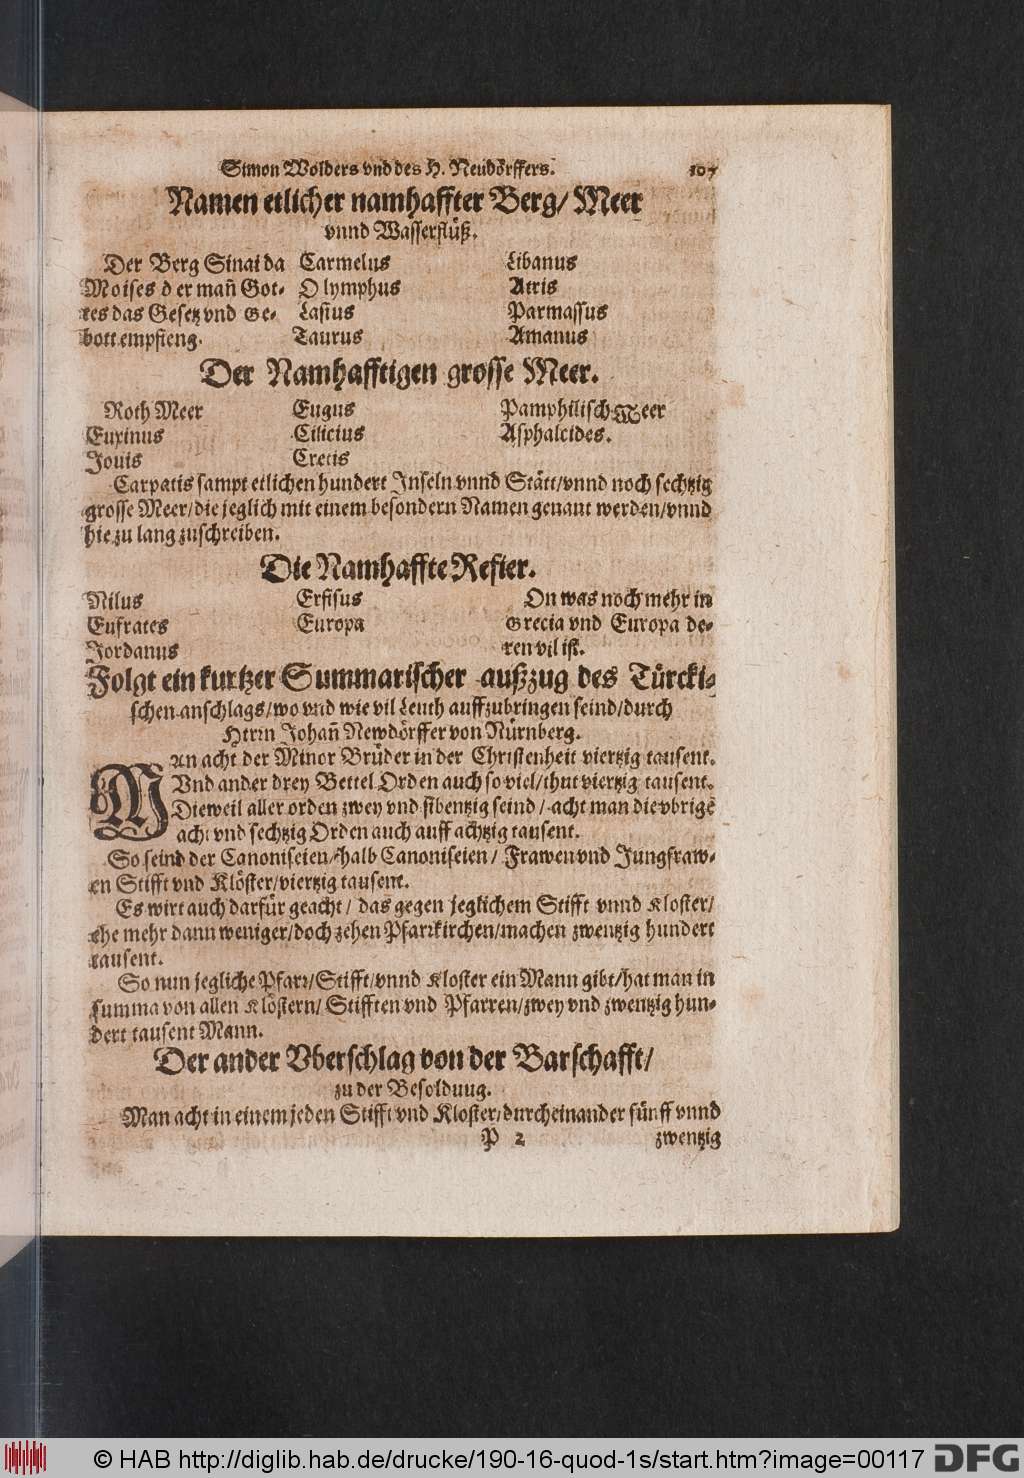 Simon Wolders vnd des H. Neudörffers. 107
Namen etlicher namhaffter Berg/ Meer
vnnd Wasserflüß.
Der Berg Sinai da
Moises d er mañ Got-
tes das Gesetz vnd Ge-
bott empfieng.
Carmelus
O lymphus
Lasius
Taurus
Libanus
Atris
Parmassus
Amanus
Der Namhafftigen grosse Meer.
Roth Meer
Euxinus
Jouis
Eugus
Cilicius
Cretis
Pamphilisch Meer
Asphaltides.
Carpatis sampt etlichen hundert Inseln vnnd Stätt/ vnnd noch sechtzig
grosse Meer/ die jeglich mit einem besondern Namen genant werden/ vnnd
hie zu lang zuschreiben.
Die Namhaffte Refier.
Nilus
Eufrates
Jordanus
Erfisus
Europa
On was noch mehr in
Grecia vnd Europa de-
ren vil ist.
Folgt ein kurtzer Summarischer außzug des Türcki-
schen anschlags/ wo vnd wie vil Leuth auffzubringen seind/ durch
Herrn Johañ Newdörffer von Nürnberg.
MAn acht der Minor Brüder in der Christenheit viertzig tausent.
Vnd ander drey Bettel Orden auch so viel/ thut viertzig tausent.
Dieweil aller orden zwey vnd sibentzig seind/ acht man die vbrigē
acht vnd sechtzig Orden auch auff achtzig tausent.
So seind der Canoniseien/ halb Canoniseien/ Frawen vnd Jungfraw-
en Stifft vnd Klöster/ viertzig tausent.
Es wirt auch darfür geacht/ das gegen jeglichem Stifft vnnd Kloster/
ehe mehr dann weniger/ doch zehen Pfarrkirchen/ machen zwentzig hundert
tausent.
So nun jegliche Pfarr/ Stifft/ vnnd Kloster ein Mann gibt/ hat man in
summa von allen Klöstern/ Stifften vnd Pfarren/ zwey vnd zwentzig hun-
dert tausent Mann.
Der ander Vberschlag von der Barschafft/
zu der Besoldung.
Man acht in einem jeden Stifft vnd Kloster/ durcheinander fünff vnnd
P 2 zwentzig
© HAB http://diglib.hab.de/drucke/190-16-quod-1s/start.htm?image=00117 DFG